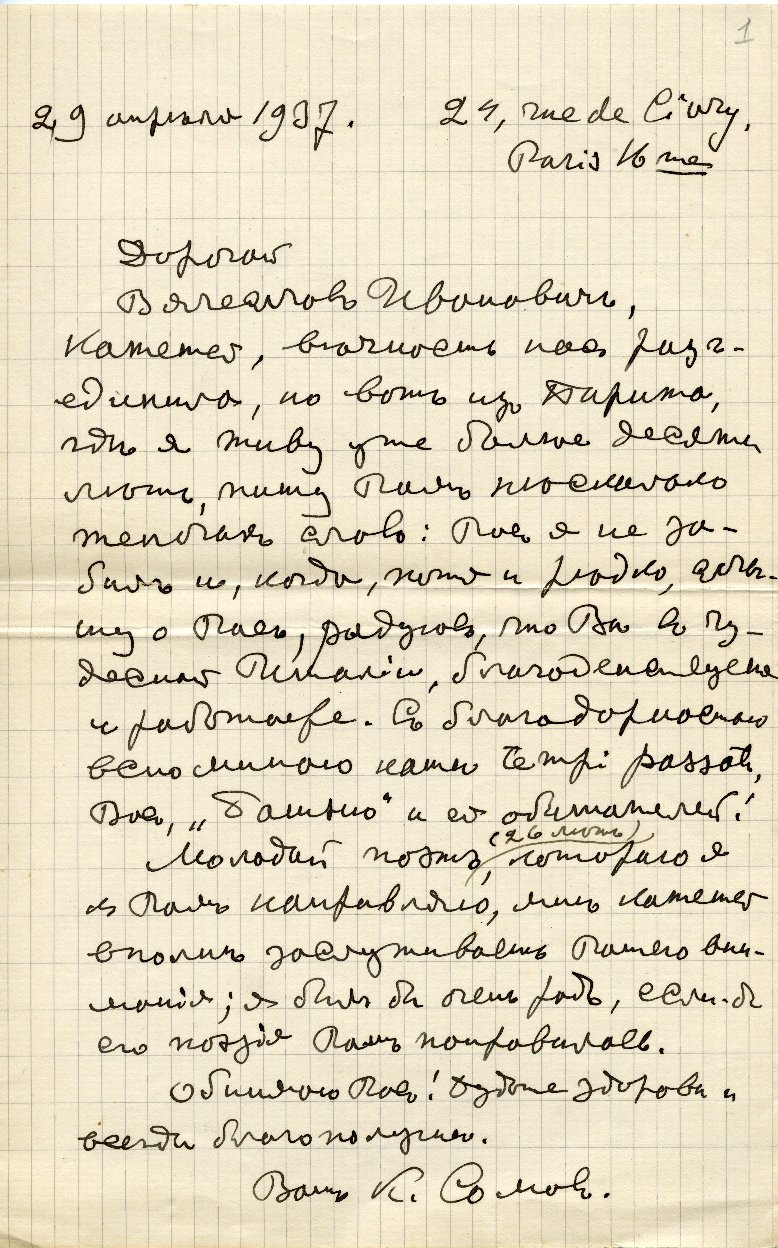 1
29 апрѣля 1937. 24, rue de Civry,
Paris 16 me
Дорогой
Вячеславъ Ивановичъ,
кажется, вѣчность насъ разъ-
единила, но вотъ изъ Парижа,
гдѣ я живу уже больше десяти
лѣтъ, пишу Вамъ нѣсколько
словъ: Васъ я не за-
былъ и, когда, хотя и рѣдко, услы-
шу о Васъ, радуюсь, что Вы въ чу-
десной Италіи, благоденствуете
и работаете. Съ благодарностью
вспоминаю наши tempi passati,
Васъ, „Башню“ и ея обитателей!
(26 лѣтъ)
Молодой поэтъ, котораго я
къ Вамъ направляю, мнѣ кажется
вполнѣ заслуживаетъ Вашего вни-
манія; я былъ бы очень радъ, если-бъ
его поэзія Вамъ понравилась.
Обнимаю Васъ! Будьте здоровы и
всегда благополучны.
Вашъ К. Сомовъ.